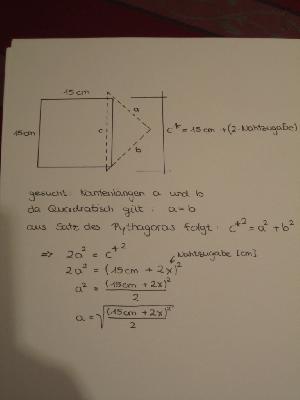 15cm
a
15cm
c
c* = 15cm + (2·Nahtzugabe)
b
gesucht: Kantenlängen a und b
da Quadratisch gilt: a=b
aus Satz des Pythagoras folgt: c*² = a² + b²
⇒ 2a² = c*²
Nahtzugabe [cm]
2a² = (15cm + 2x)²
a² = (15cm + 2x)²/2
a = √((15cm + 2x)²/2)